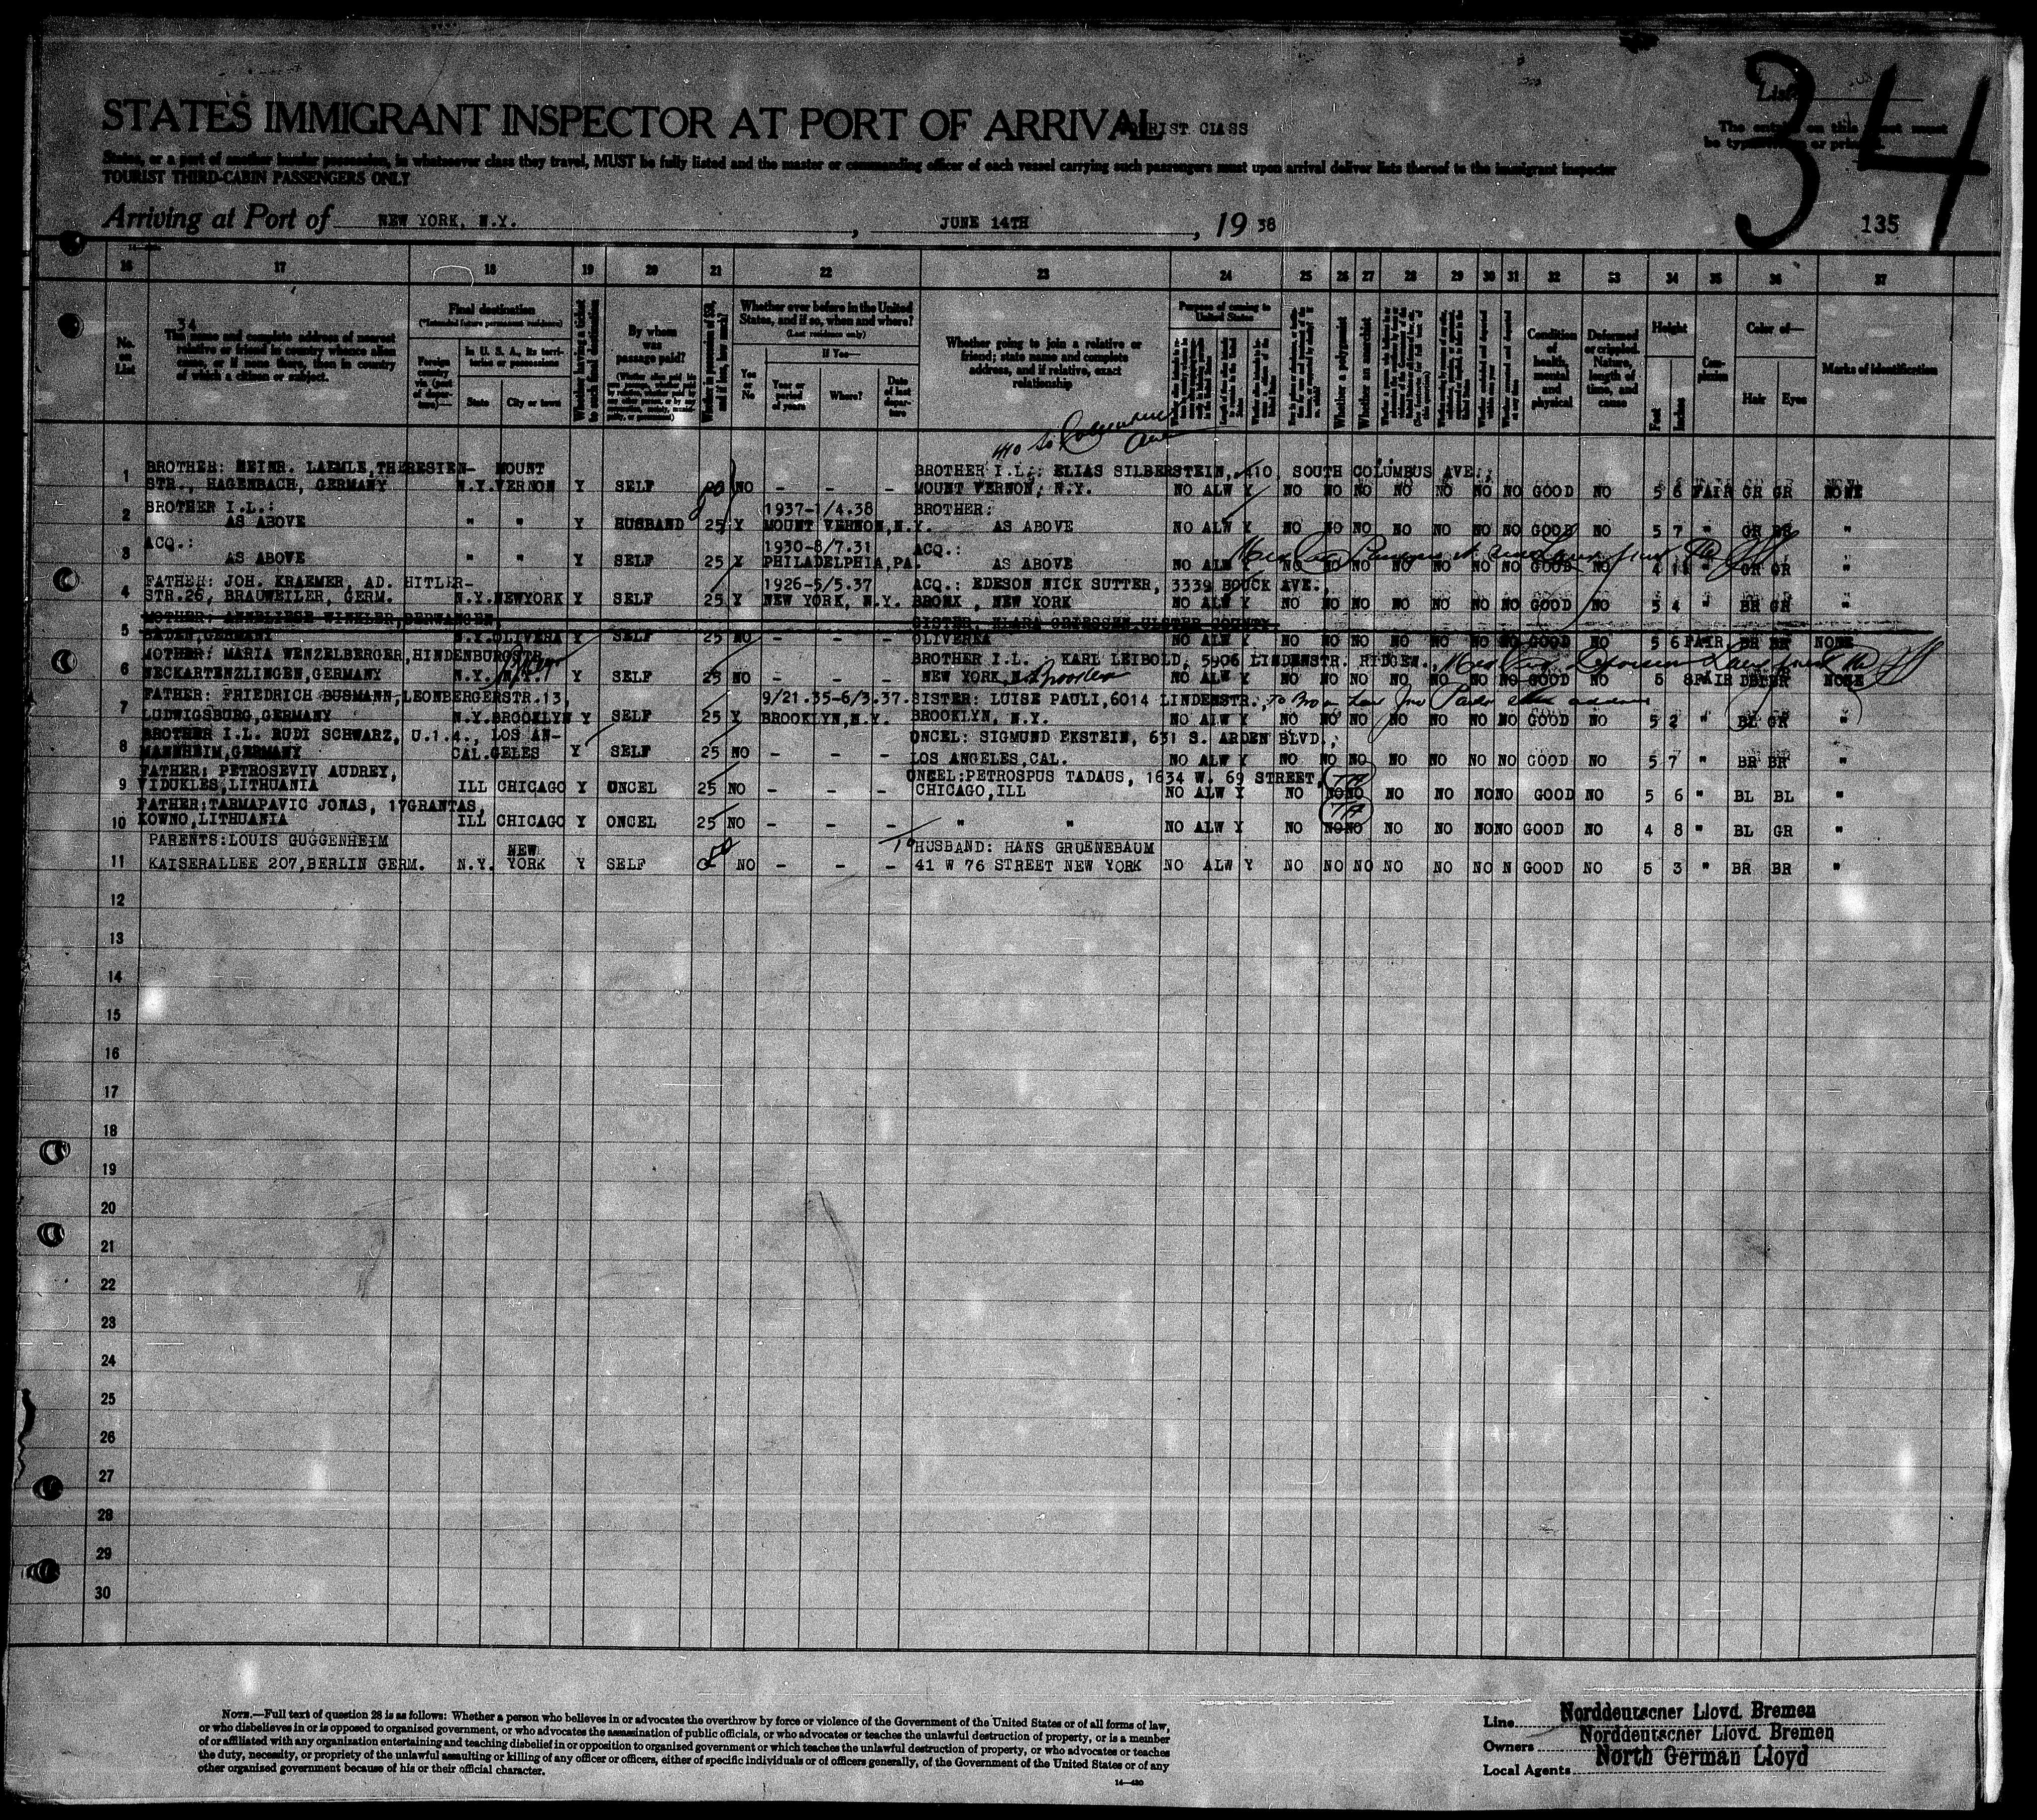 34
List
STATES IMMIGRANT INSPECTOR AT PORT OF ARRIVAL
TOURIST CLASS
The entries on this sheet must
be typewritten or printed.
States, or a part of another insular possession, in whatsoever class they travel, MUST be fully listed and the master or commanding officer of each vessel carrying such passengers must upon arrival deliver lists thereof to the immigrant inspector
TOURIST THIRD-CABIN PASSENGERS ONLY
Arriving at Port of NEW YORK, N.Y. , JUNE 14TH , 19 38
135
16 17 18 19 20 21 22 23 24 25 26 27 28 29 30 31 32 33 34 35 36 37
No. on List
34
The name and complete address of nearest relative or friend in country whence alien came, or if none there, then in country of which a citizen or subject.
Final destination
(*Intended future permanent residence)
In U. S. A., its territories or possessions
State
City or town
Whether having a ticket to such final destination
By whom was passage paid?
Whether in possession of $50, and if less, how much?
Whether ever before in the United States, and if so, when and where?
(Last residence only)
Yes or No
If Yes—
Year or period of years
Where?
Date of last departure
Whether going to join a relative or friend; state name and complete address, and if relative, exact relationship
Purpose of coming to United States
Whether a polygamist
Whether an anarchist
Condition of health, mental and physical
Deformed or crippled. Nature, length of time, and cause
Height
Feet
Inches
Complexion
Color of—
Hair
Eyes
Marks of identification
410 So Columbus Ave
BROTHER: HEINR. LAEMLE, THERESIEN- MOUNT BROTHER I.L.: ELIAS SILBERSTEIN, 410, SOUTH COLUMBUS AVE.,
1 STR., HAGENBACH, GERMANY N.Y. VERNON Y SELF NO - - - MOUNT VERNON, N.Y. NO ALW Y NO NO NO NO NO NO NO GOOD NO 5 6 FAIR GR GR NONE
BROTHER I.L.: 1937-1/4.38 BROTHER:
2 AS ABOVE " " Y HUSBAND 25 Y MOUNT VERNON, N.Y. AS ABOVE NO ALW Y NO NO NO NO NO NO NO GOOD NO 5 7 " GR BR "
ACQ.: 1930-8/7.31 ACQ.:
3 AS ABOVE " " Y SELF 25 Y PHILADELPHIA, PA. AS ABOVE NO ALW NO NO NO NO NO NO NO GOOD NO 4 11 " GR GR "
FATHER: JOH. KRAEMER, AD. HITLER- 1926-5/5.37 ACQ.: EDESON NICK SUTTER, 3339 BOUCK AVE.,
4 STR.26, BRAUWEILER, GERM. N.Y. NEWYORK Y SELF 25 Y NEW YORK, N.Y. BRONX, NEW YORK NO ALW Y NO NO NO NO NO NO NO GOOD NO 5 4 " BR GR "
MOTHER: ANNELIESE WINKLER, BERWANGEN, SISTER, KLARA GRIESSEN, ULSTER COUNTY.
5 BADEN, GERMANY N.Y. OLIVEREA Y SELF 25 NO - - - OLIVEREA NO ALW Y NO NO NO NO NO NO NO GOOD NO 5 6 FAIR BR BR NONE
MOTHER: MARIA WENZELBERGER, HINDENBURGSTR. BROTHER I.L. KARL LEIBOLD, 5906 LINDENSTR. RIDGEW.,
6 NECKARTENZLINGEN, GERMANY N.Y. N.Y. Y SELF 25 NO - - - NEW YORK, N. Brooklyn NO ALW Y NO NO NO NO NO NO NO GOOD NO 5 8 FAIR NONE
FATHER: FRIEDRICH BUSMANN, LEONBERGERSTR.13, 9/21.35-6/3.37. SISTER: LUISE PAULI, 6014 LINDENSTR.,
7 LUDWIGSBURG, GERMANY N.Y. BROOKLYN Y SELF 25 Y BROOKLYN, N.Y. BROOKLYN, N.Y. NO ALW Y NO NO NO NO NO NO NO GOOD NO 5 2 " BL GR "
BROTHER I.L. RUDI SCHWARZ, U.1.4., LOS AN- ONCEL: SIGMUND EKSTEIN, 631 S. ARDEN BLVD.,
8 MANNHEIM, GERMANY CAL. GELES Y SELF 25 NO - - - LOS ANGELES, CAL. NO ALW Y NO NO NO NO NO NO NO GOOD NO 5 7 " BR BR "
FATHER: PETROSEVIV AUDREY, ONCEL: PETROSPUS TADAUS, 1634 W. 69 STREET,
9 VIDUKLES, LITHUANIA ILL CHICAGO Y ONCEL 25 NO - - - CHICAGO, ILL NO ALW Y NO NO NO NO NO NO NO GOOD NO 5 6 " BL BL "
FATHER: TARMAPAVIC JONAS, 17GRANTAS,
10 KOWNO, LITHUANIA ILL CHICAGO Y ONCEL 25 NO - - - " " NO ALW Y NO NO NO NO NO NO NO GOOD NO 4 8 " BL GR "
PARENTS: LOUIS GUGGENHEIM NEW To HUSBAND: HANS GRUENEBAUM
11 KAISERALLEE 207, BERLIN GERM. N.Y. YORK Y SELF NO - - - 41 W 76 STREET NEW YORK NO ALW Y NO NO NO NO NO NO N GOOD NO 5 3 " BR BR "
12
13
14
15
16
17
18
19
20
21
22
23
24
25
26
27
28
29
30
NOTE.—Full text of question 28 is as follows: Whether a person who believes in or advocates the overthrow by force or violence of the Government of the United States or of all forms of law,
or who disbelieves in or is opposed to organized government, or who advocates the assassination of public officials, or who advocates or teaches the unlawful destruction of property, or is a member
of or affiliated with any organization entertaining and teaching disbelief in or opposition to organized government or which teaches the unlawful destruction of property, or who advocates or teaches
the duty, necessity, or propriety of the unlawful assaulting or killing of any officer or officers, either of specific individuals or of officers generally, of the Government of the United States or of any
other organized government because of his or their official character.
14—430
Line Norddeutscher Lloyd Bremen
Owners Norddeutscher Lloyd Bremen
Local Agents North German Lloyd